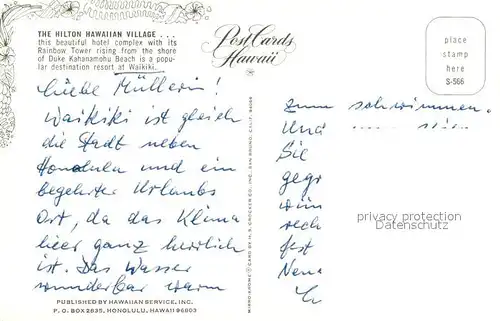 THE HILTON HAWAIIAN VILLAGE . . .
this beautiful hotel complex with its
Rainbow Tower rising from the shore
of Duke Kahanamohu Beach is a popu-
lar destination resort at Waikiki.
Post Cards
Hawaii
place
stamp
here
S-566
Liebe Müllerin!
Waikiki ist gleich
die Stadt neben
Honolulu und ein
begehrter Urlaubs
Ort, da das Klima
hier ganz herrlich
ist. Das Wasser
wunderbar warm
PUBLISHED BY HAWAIIAN SERVICE, INC.
P. O. BOX 2835, HONOLULU, HAWAII 96803
MIRRO-KROME ® CARD BY H. S. CROCKER CO., INC., SAN BRUNO, CALIF. 94066
zum schwimmen.
Und
Sie
gegr
wün
rech
fest
Neu
privacy protection
Datenschutz